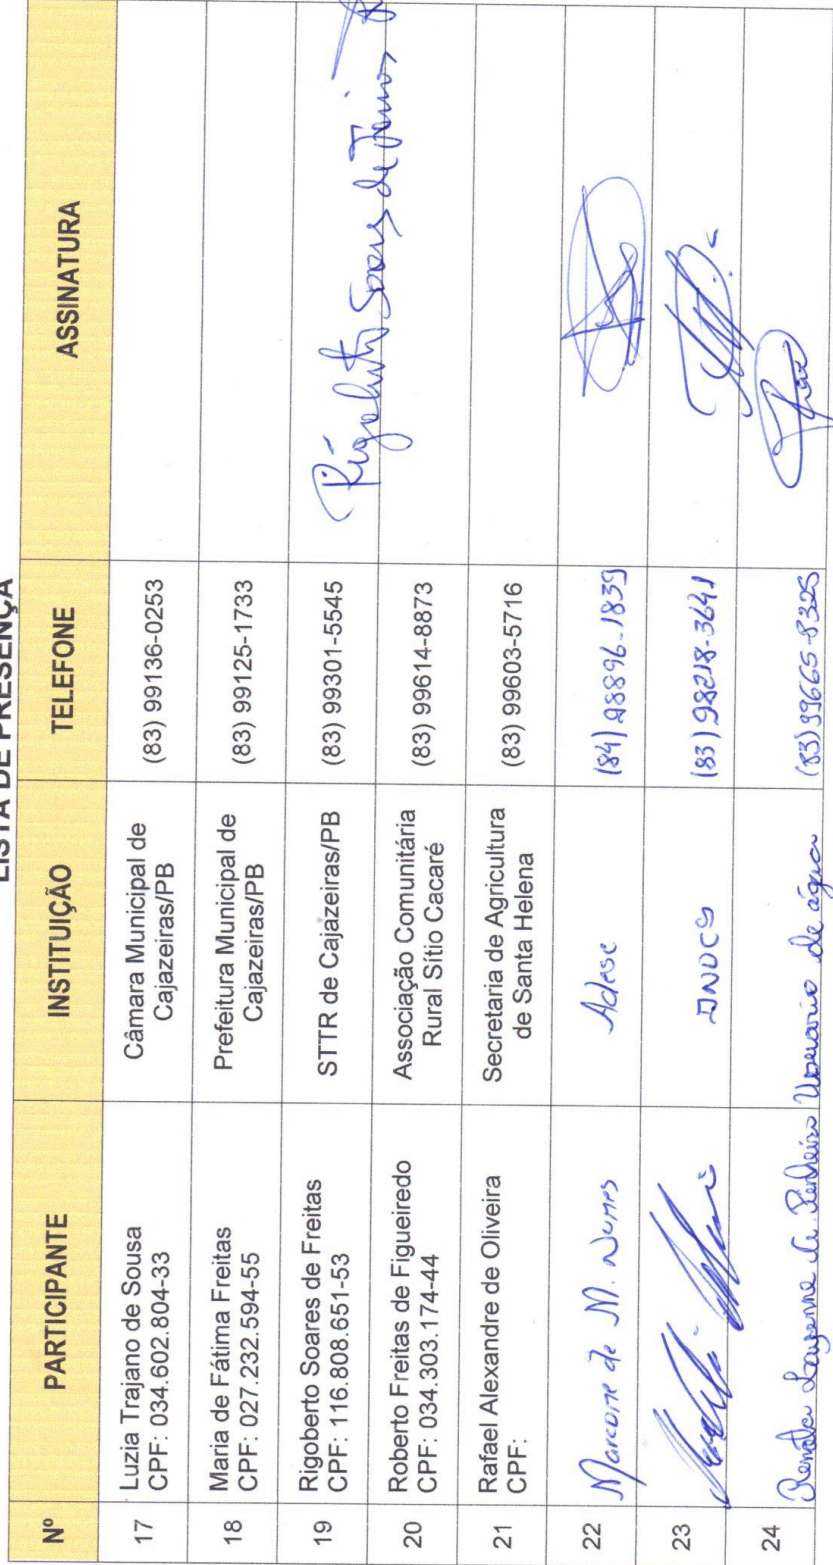 LISTA DE PRESENÇA
Nº PARTICIPANTE INSTITUIÇÃO TELEFONE ASSINATURA
17 Luzia Trajano de Sousa
CPF: 034.602.804-33
Câmara Municipal de
Cajazeiras/PB
(83) 99136-0253
18 Maria de Fátima Freitas
CPF: 027.232.594-55
Prefeitura Municipal de
Cajazeiras/PB
(83) 99125-1733
19 Rigoberto Soares de Freitas
CPF: 116.808.651-53
STTR de Cajazeiras/PB
(83) 99301-5545
Rigoberto Soares de
20 Roberto Freitas de Figueiredo
CPF: 034.303.174-44
Associação Comunitária
Rural Sítio Cacaré
(83) 99614-8873
21 Rafael Alexandre de Oliveira
CPF:
Secretaria de Agricultura
de Santa Helena
(83) 99603-5716
22 Marcone de M. Nunes
Adese
(84) 98896-1839
23
DNOCS
(83) 98218-3641
24 Renata
Usuario de água
(83) 99665-8325